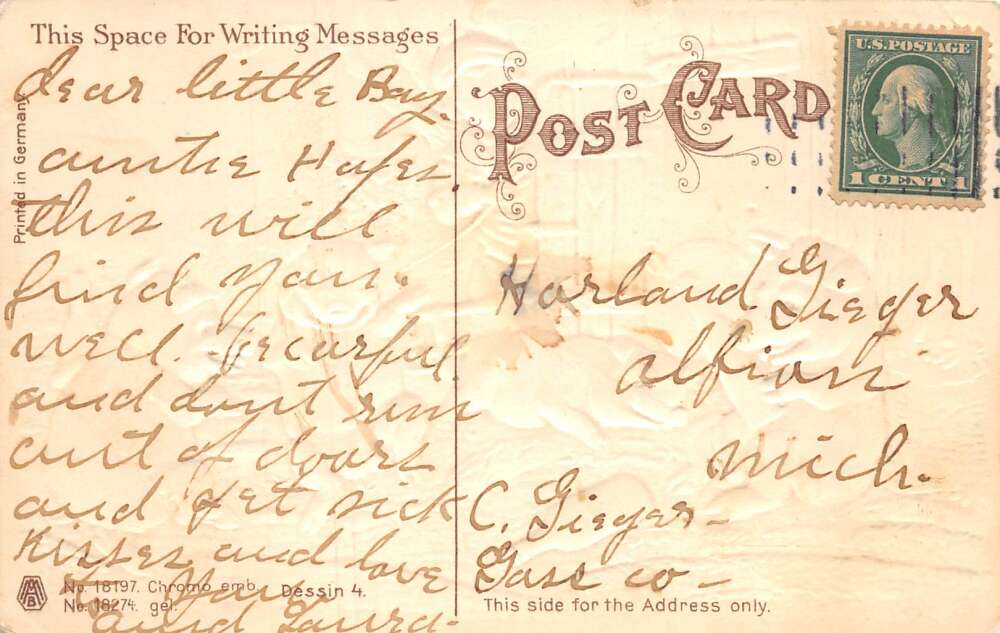 This Space For Writing Messages
dear little Boy.
auntie Hopes.
this will
find you.
well. be carful.
and dont run
out of doors
and get sick
Kisses and love
to you
aunt Laura.
Printed in Germany
No. 18197. Chromo emb. Dessin 4.
No. 18274. gel.
POST CARD
U.S. POSTAGE
1 CENT 1
Harland Gieger
albion
mich.
C. Gieger -
Gass co -
This side for the Address only.